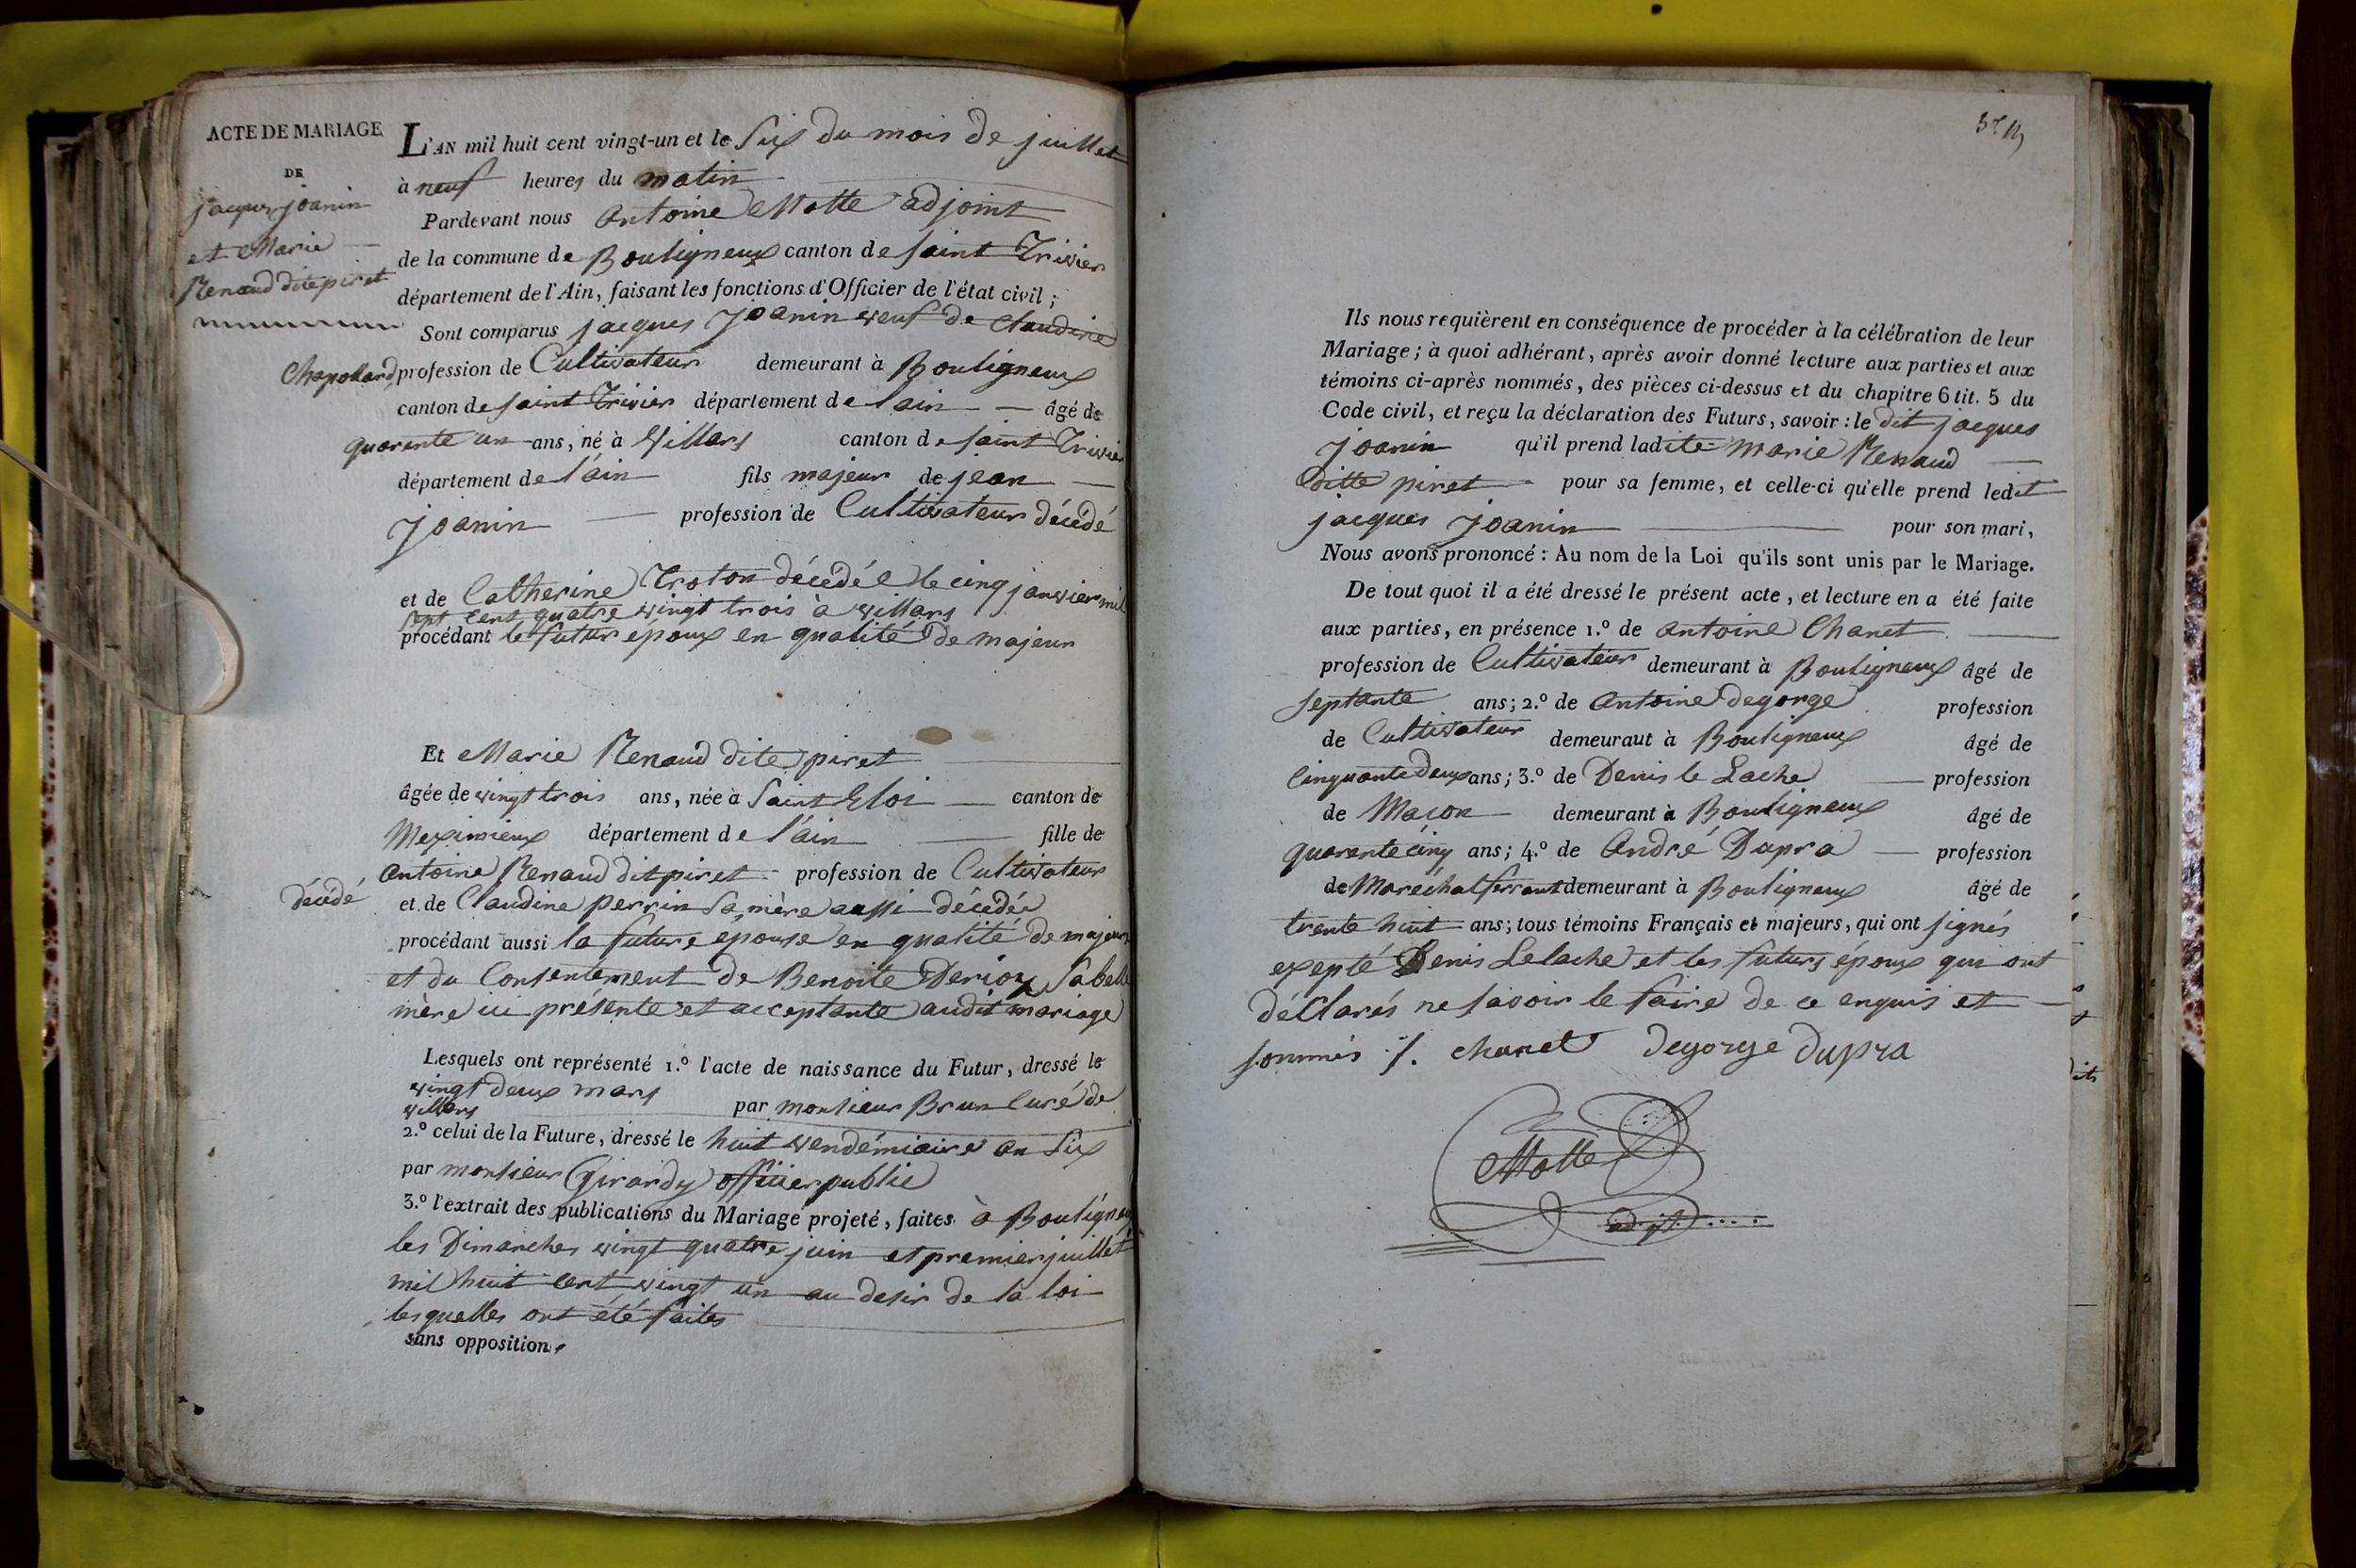 ACTE DE MARIAGE
DE
jacques joanin
et Marie
Renaud dite piret
L'AN mil huit cent vingt-un et le Six du mois de juillet
à neuf heures du matin
Pardevant nous Antoine Motte adjoint
de la commune de Bouligneux canton de saint Trivier
département de l'Ain, faisant les fonctions d'Officier de l'état civil ;
Sont comparus jacques joanin veuf de Claudine
Chapolard profession de Cultivateur demeurant à Bouligneux
canton de saint Trivier département de l'ain âgé de
quarente un ans, né à Villars canton de saint Trivier
département de l'ain fils majeur de jean
joanin profession de Cultivateur décédé
et de Catherine Troton décédée le cinq janvier mil
sept cent quatre vingt trois à villars
procédant le futur époux en qualité de majeur
Et Marie Renaud dite piret
âgée de vingt trois ans, née à Saint Eloi canton de
Meximieux département de l'ain fille de
Antoine Renaud dit piret profession de Cultivateur
décédé et de Claudine perrin Sa mère aussi décédée
procédant aussi la future épouse en qualité de majeure
et du Consentement de Benoite Derioz Sa belle
mère ici présente et acceptante audit mariage
Lesquels ont représenté 1.º l'acte de naissance du Futur, dressé le
vingt deux mars par monsieur Brun Curé de
villars
2.º celui de la Future, dressé le huit vendémiaire an Six
par monsieur Girardy officier public
3.º l'extrait des publications du Mariage projeté, faites à Bouligneux
les Dimanches vingt quatre juin et premier juillet
mil huit cent vingt un au desir de la loi
lesquelles ont été faites
sans opposition,
Ils nous requièrent en conséquence de procéder à la célébration de leur
Mariage ; à quoi adhérant, après avoir donné lecture aux parties et aux
témoins ci-après nommés, des pièces ci-dessus et du chapitre 6 tit. 5 du
Code civil, et reçu la déclaration des Futurs, savoir : le dit jacques
joanin qu'il prend ladite marie Renaud
ditte piret pour sa femme, et celle-ci qu'elle prend ledit
jacques joanin pour son mari,
Nous avons prononcé : Au nom de la Loi qu'ils sont unis par le Mariage.
De tout quoi il a été dressé le présent acte, et lecture en a été faite
aux parties, en présence 1.º de Antoine Chanet
profession de Cultivateur demeurant à Bouligneux âgé de
septante ans ; 2.º de Antoine Degorge profession
de Cultivateur demeuraut à Bouligneux âgé de
Cinquante deux ans ; 3.º de Denis le Lache profession
de Macon demeurant à Bouligneux âgé de
quarente cinq ans ; 4.º de André Dupra profession
de Maréchal ferrant demeurant à Bouligneux âgé de
trente huit ans ; tous témoins Français et majeurs, qui ont signés
exepté Denis Lelache et les futurs époux qui ont
déclarés ne savoir le faire de ce enquis et
sommés ·/. chanet degorge dupra
Motte
adjt